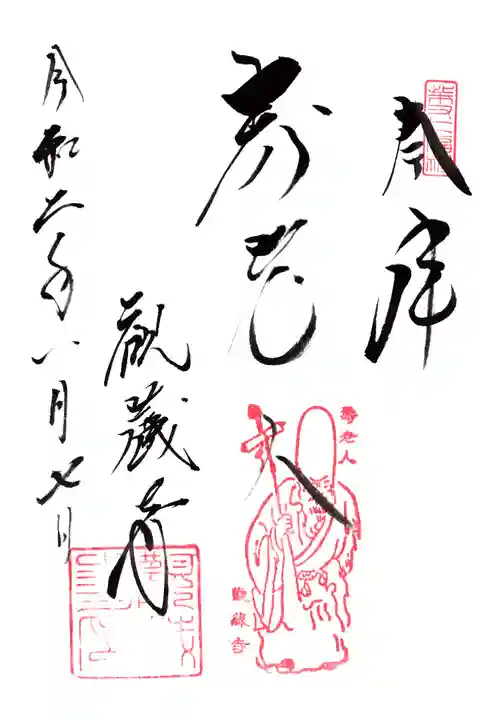 奉拝
寿老人
寿老人
観蔵寺
観蔵寺
令和六年八月七日